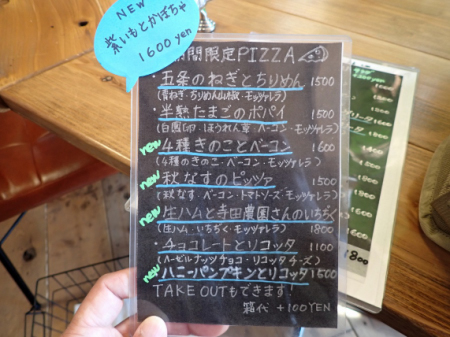 NEW
紫いもとかぼちゃ
1600yen
期間限定PIZZA
・五条のねぎとちりめん 1500
(青ねぎ・ちりめん山椒・モッツァレラ)
・半熟たまごのポパイ 1500
ほうれん草・ベーコン・モッツァレラ)
new 4種きのことベーコン 1600
(4種のきのこ・ベーコン・モッツァレラ)
new 秋なすのピッツァ 1500
(秋なす・ベーコン・トマトソース・モッツァレラ)
new 生ハムと寺田農園さんのいちぢく
(生ハム・いちぢく・モッツァレラ) 1800
・チョコレートとリコッタ 1100
(ヘーゼルナッツチョコ・リコッタチーズ)
new ハニーパンプキンとリコッタ 1500
TAKE OUTもできます!
箱代 +100YEN
1500
1600
1800